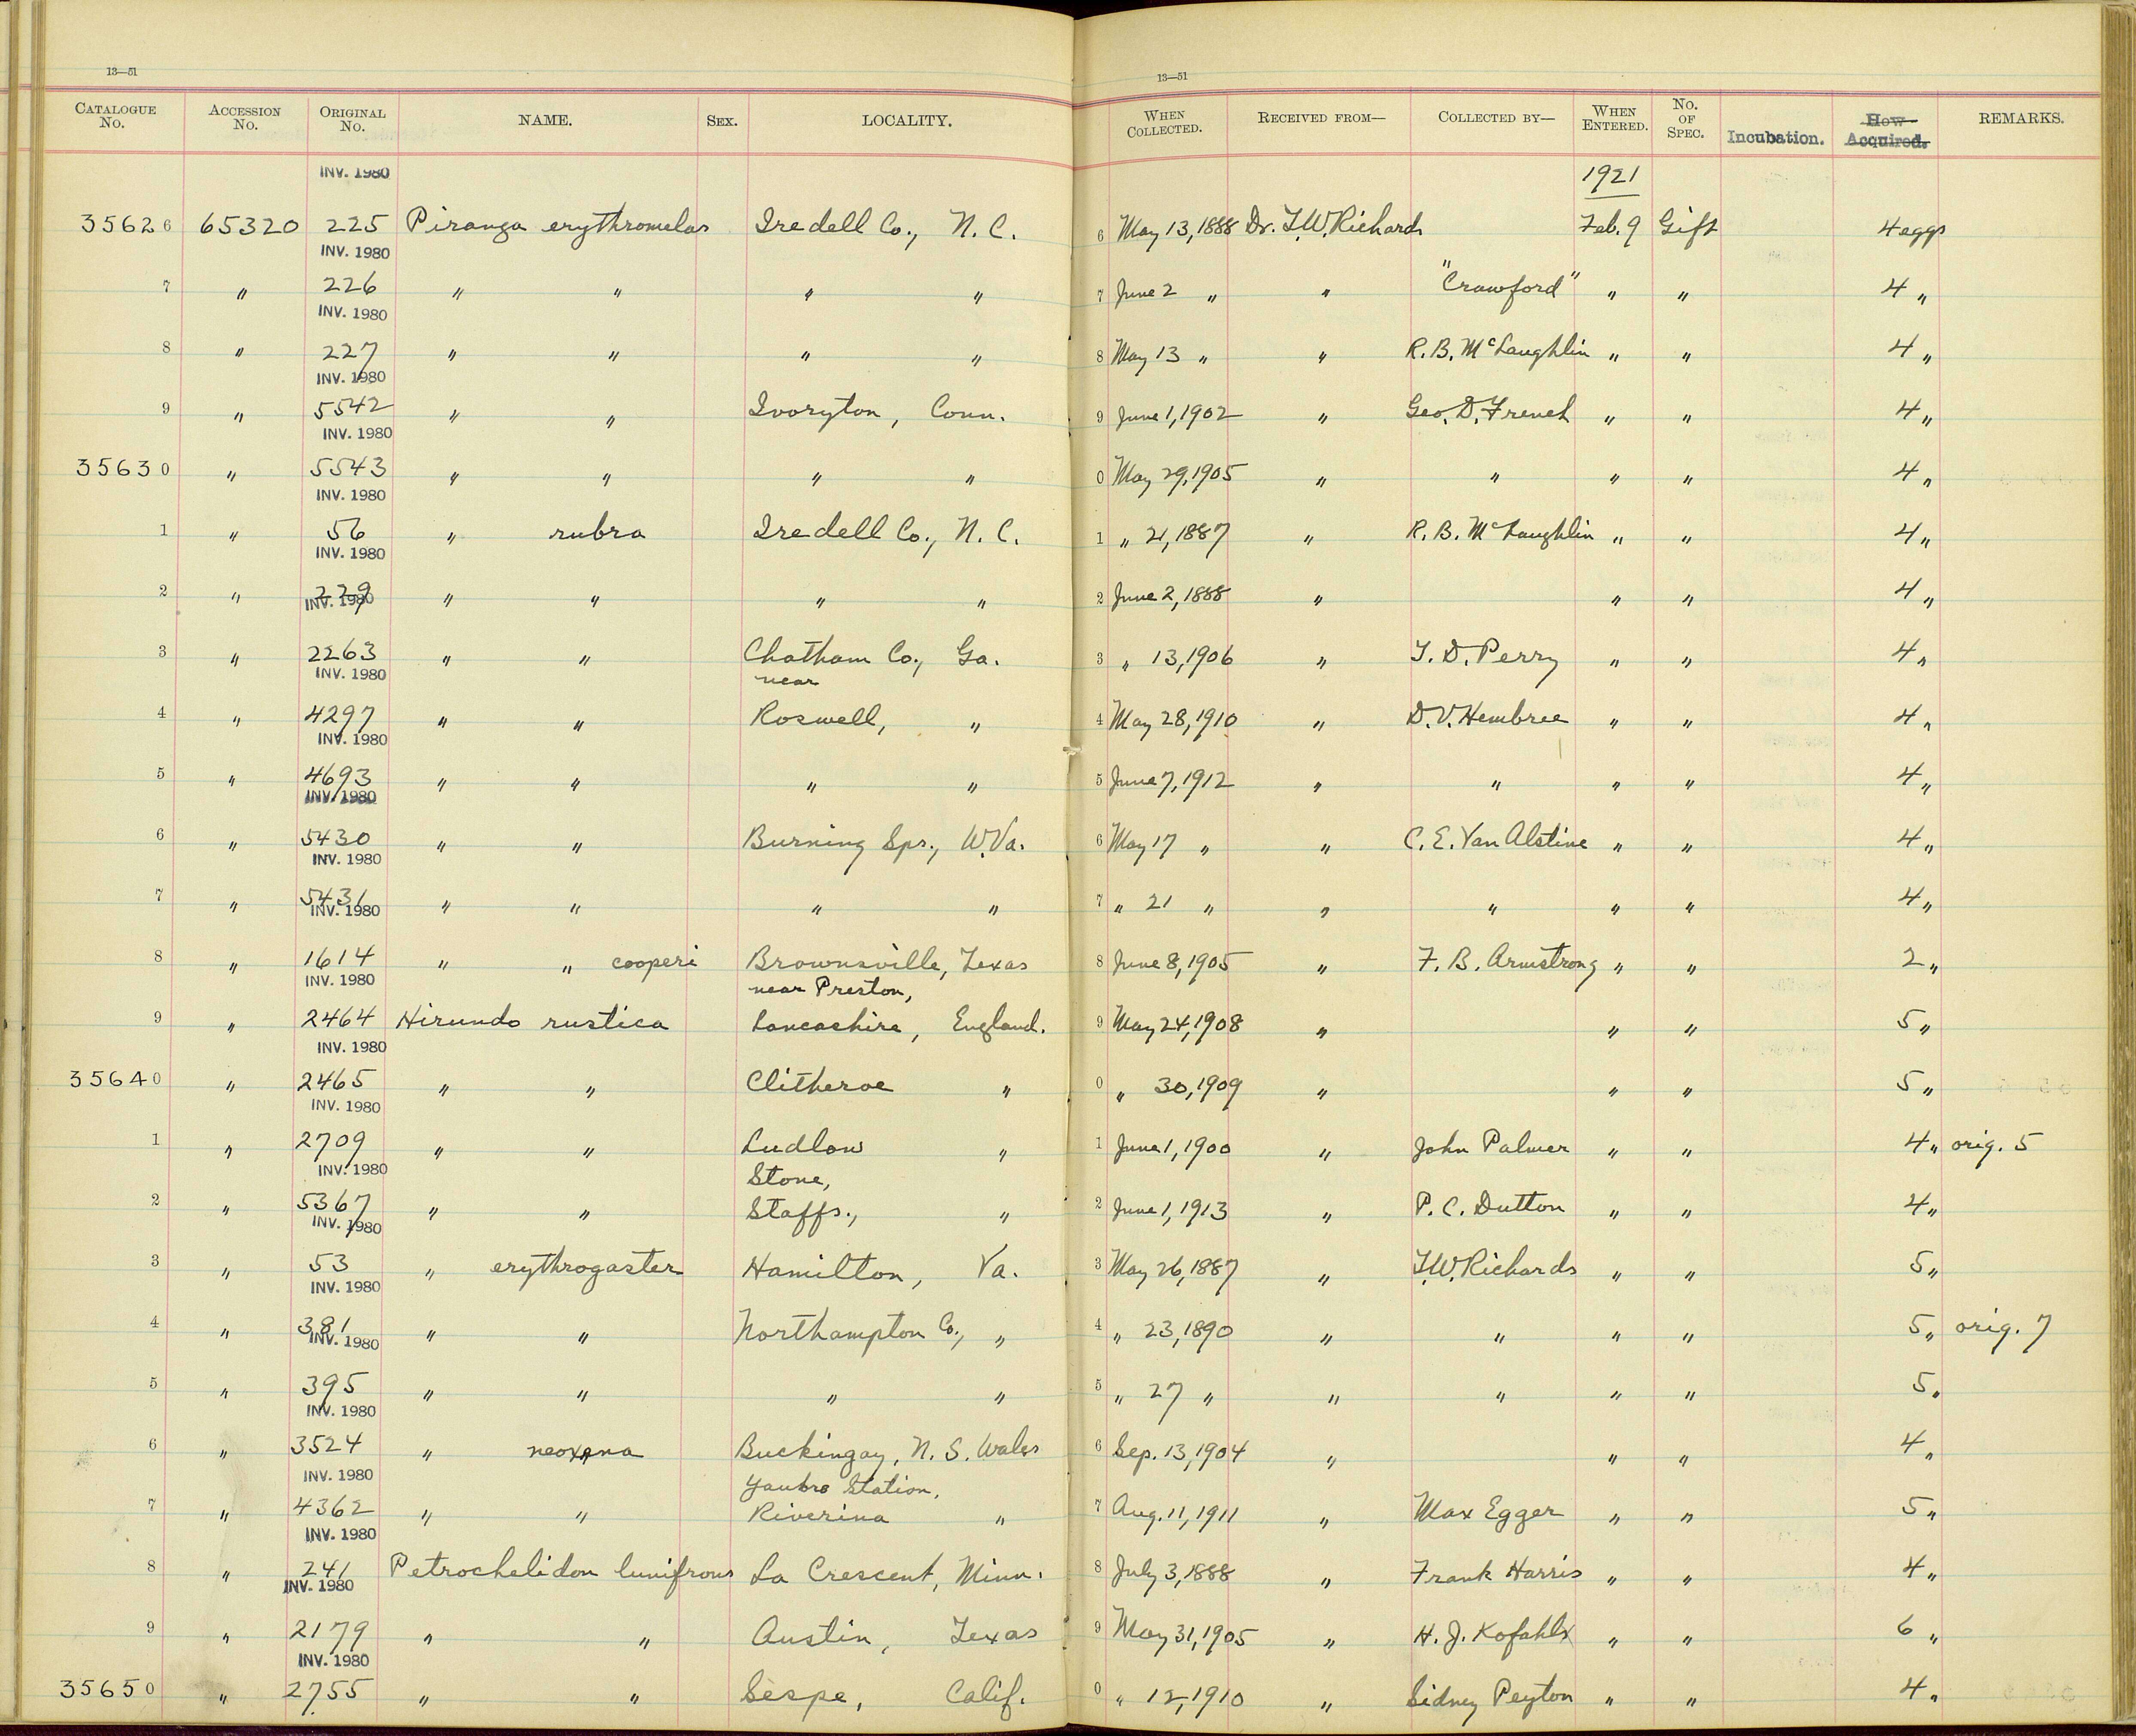 13—51
13—51
CATALOGUE No. ACCESSION No. ORIGINAL No. NAME. SEX. LOCALITY. WHEN COLLECTED. RECEIVED FROM— COLLECTED BY— WHEN ENTERED. No. OF SPEC. Incubation. How Acquired. REMARKS.
INV. 1980 1921
35626 65320 225 Piranga erythromelas Iredell Co., N. C. 6 May 13, 1888 Dr. T.W. Richards Feb. 9 Gift 4 eggs
INV. 1980
7 " 226 " " " " 7 June 2 " " "Crawford" " " 4 "
INV. 1980
8 " 227 " " " " 8 May 13 " " R. B. McLaughlin " " 4 "
INV. 1980
9 " 5542 " " Ivoryton, Conn. 9 June 1, 1902 " Geo. D. French " " 4 "
INV. 1980
35630 " 5543 " " " " 0 May 29, 1905 " " " " 4 "
INV. 1980
1 " 56 " rubra Iredell Co., N. C. 1 " 21, 1887 " R. B. McLaughlin " " 4 "
INV. 1980
2 " 229 " " " " 2 June 2, 1888 " " " 4 "
INV. 1980
3 " 2263 " " Chatham Co., Ga. 3 " 13, 1906 " T. D. Perry " " 4 "
INV. 1980 near
4 " 4297 " " Roswell, " 4 May 28, 1910 " D. V. Hembree " " 4 "
INV. 1980
5 " 4693 " " " " 5 June 7, 1912 " " " " 4 "
INV. 1980
6 " 5430 " " Burning Spr., W.Va. 6 May 17 " " C. E. Van Alstine " " 4 "
INV. 1980
7 " 5431 " " " " 7 " 21 " " " " " 4 "
INV. 1980
8 " 1614 " " cooperi Brownsville, Texas 8 June 8, 1905 " F. B. Armstrong " " 2 "
INV. 1980 near Preston,
9 " 2464 Hirundo rustica Lancashire, England. 9 May 24, 1908 " " " 5 "
INV. 1980
35640 " 2465 " " Clitheroe " 0 " 30, 1909 " " " 5 "
INV. 1980
1 " 2709 " " Ludlow " 1 June 1, 1900 " John Palmer " " 4 " orig. 5
INV. 1980 Stone,
2 " 5367 " " Staffs., " 2 June 1, 1913 " P. C. Dutton " " 4 "
INV. 1980
3 " 53 " erythrogaster Hamilton, Va. 3 May 26, 1887 " T.W. Richards " " 5 "
INV. 1980
4 " 381 " " Northampton Co., " 4 " 23, 1890 " " " " 5 " orig. 7
INV. 1980
5 " 395 " " " " 5 " 27 " " " " " 5 "
INV. 1980
6 " 3524 " neoxena Buckingay, N. S. Wales 6 Sep. 13, 1904 " " " 4 "
INV. 1980 Station,
7 " 4362 " " Riverina " 7 Aug. 11, 1911 " Max Egger " " 5 "
INV. 1980
8 " 241 Petrochelidon lunifrons La Crescent, Minn. 8 July 3, 1888 " Frank Harris " " 4 "
INV. 1980
9 " 2179 " " Austin, Texas 9 May 31, 1905 " H. J. Kofahl " " 6 "
INV. 1980
35650 " 2755 " " Sespe, Calif. 0 " 12, 1910 " Sidney Peyton " " 4 "